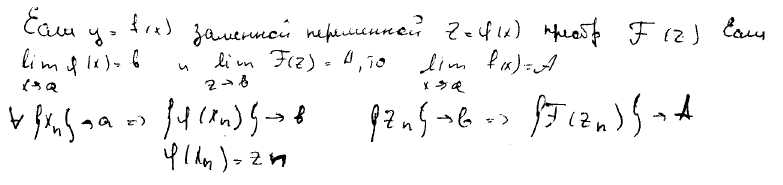 Если y = f(x) заменной переменной z = φ(x) преобр F(z) Если
lim φ(x) = b и lim F(z) = A, то lim f(x) = A
x→a z→b x→a
∀ {xₙ} → a => {φ(xₙ)} → b {zₙ} → b => {F(zₙ)} → A
φ(xₙ) = zₙ